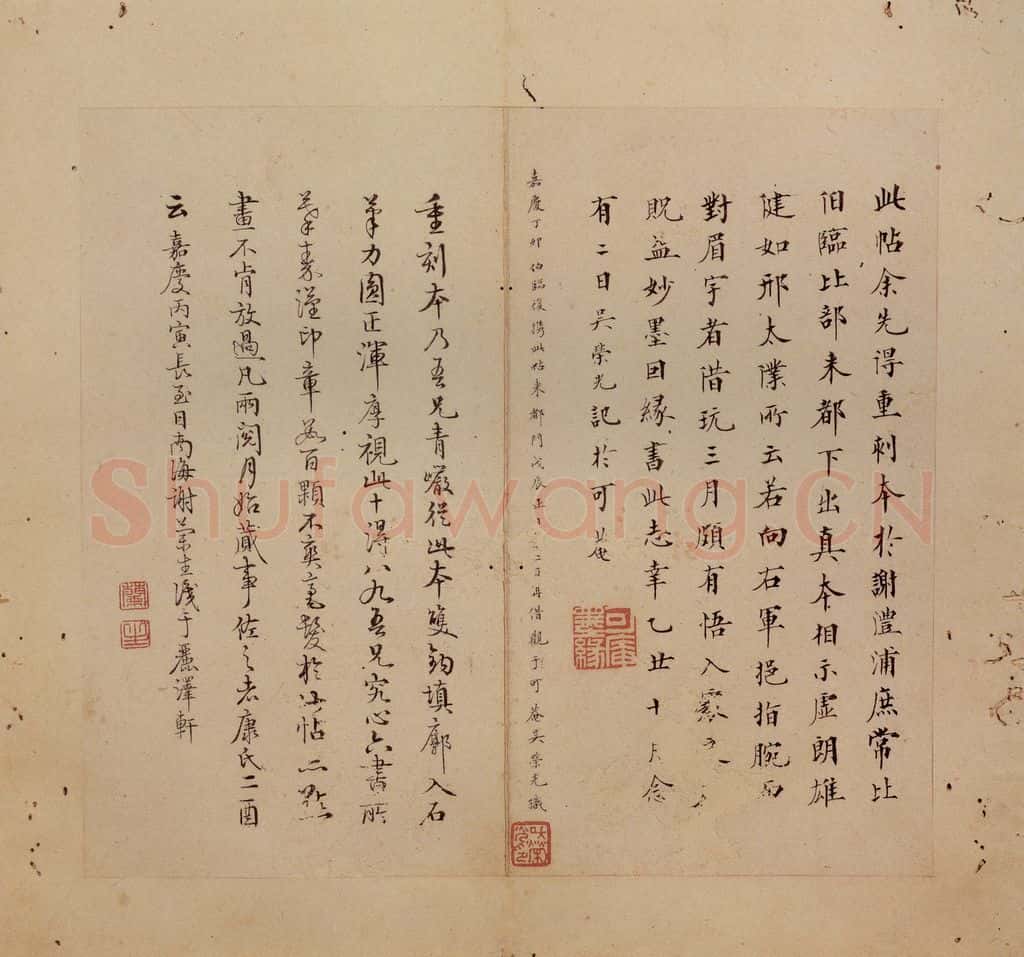 此帖余先得重刺本於謝澧浦庶常比
伯臨比部来都下出真本相示虛朗雄
健如邢太僕所云若向右軍挹指腕而
對眉宇者借玩三月頗有悟入處
貺益妙墨因緣書此志幸乙丑十月念
有二日吳榮光記於可菴
嘉慶丁卯伯臨復攜此帖来都門戊辰正月二日再借觀于可菴吳榮光識
重刻本乃吾兄青巖從此本雙鈎填廓入石
筆力圓正渾厚視此十得八九吾兄究心六書所
篆漢印章數百顆不爽毫髮於此帖一點
畫不肯放過凡兩閱月始蕆事佐之者康氏二酉
云嘉慶丙寅長至日南海謝蘭生識于麗澤軒
Shufawang.CN